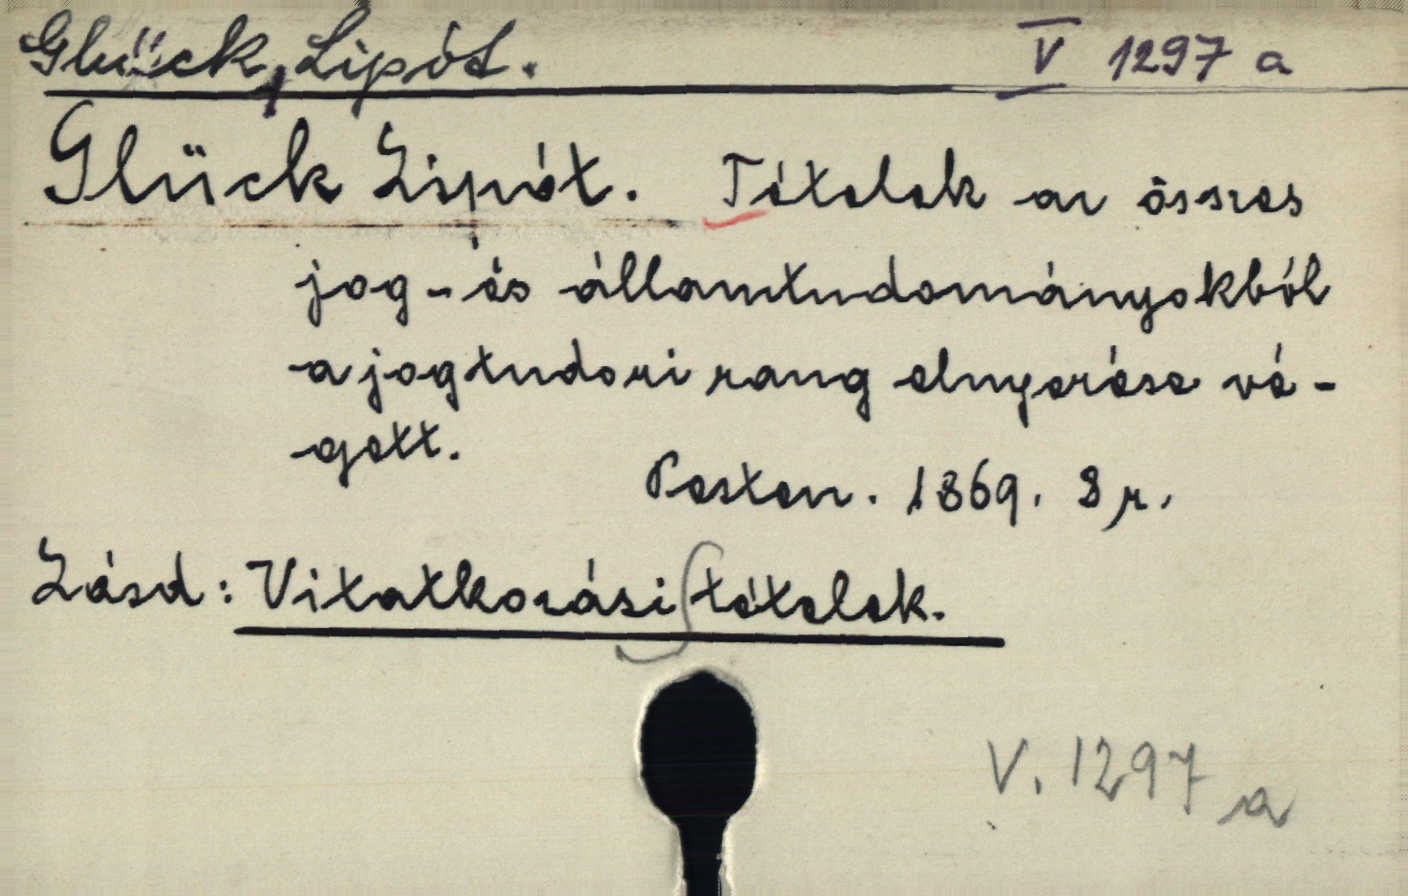 Glück, Lipót. V 1297 a
Glück Lipót. Tételek az összes
jog-és államtudományokból
a jogtudori rang elnyerése vé-
gett.
Pesten. 1869. 8 r.
Lásd: Vitatkozási tételek.
V. 1297 a